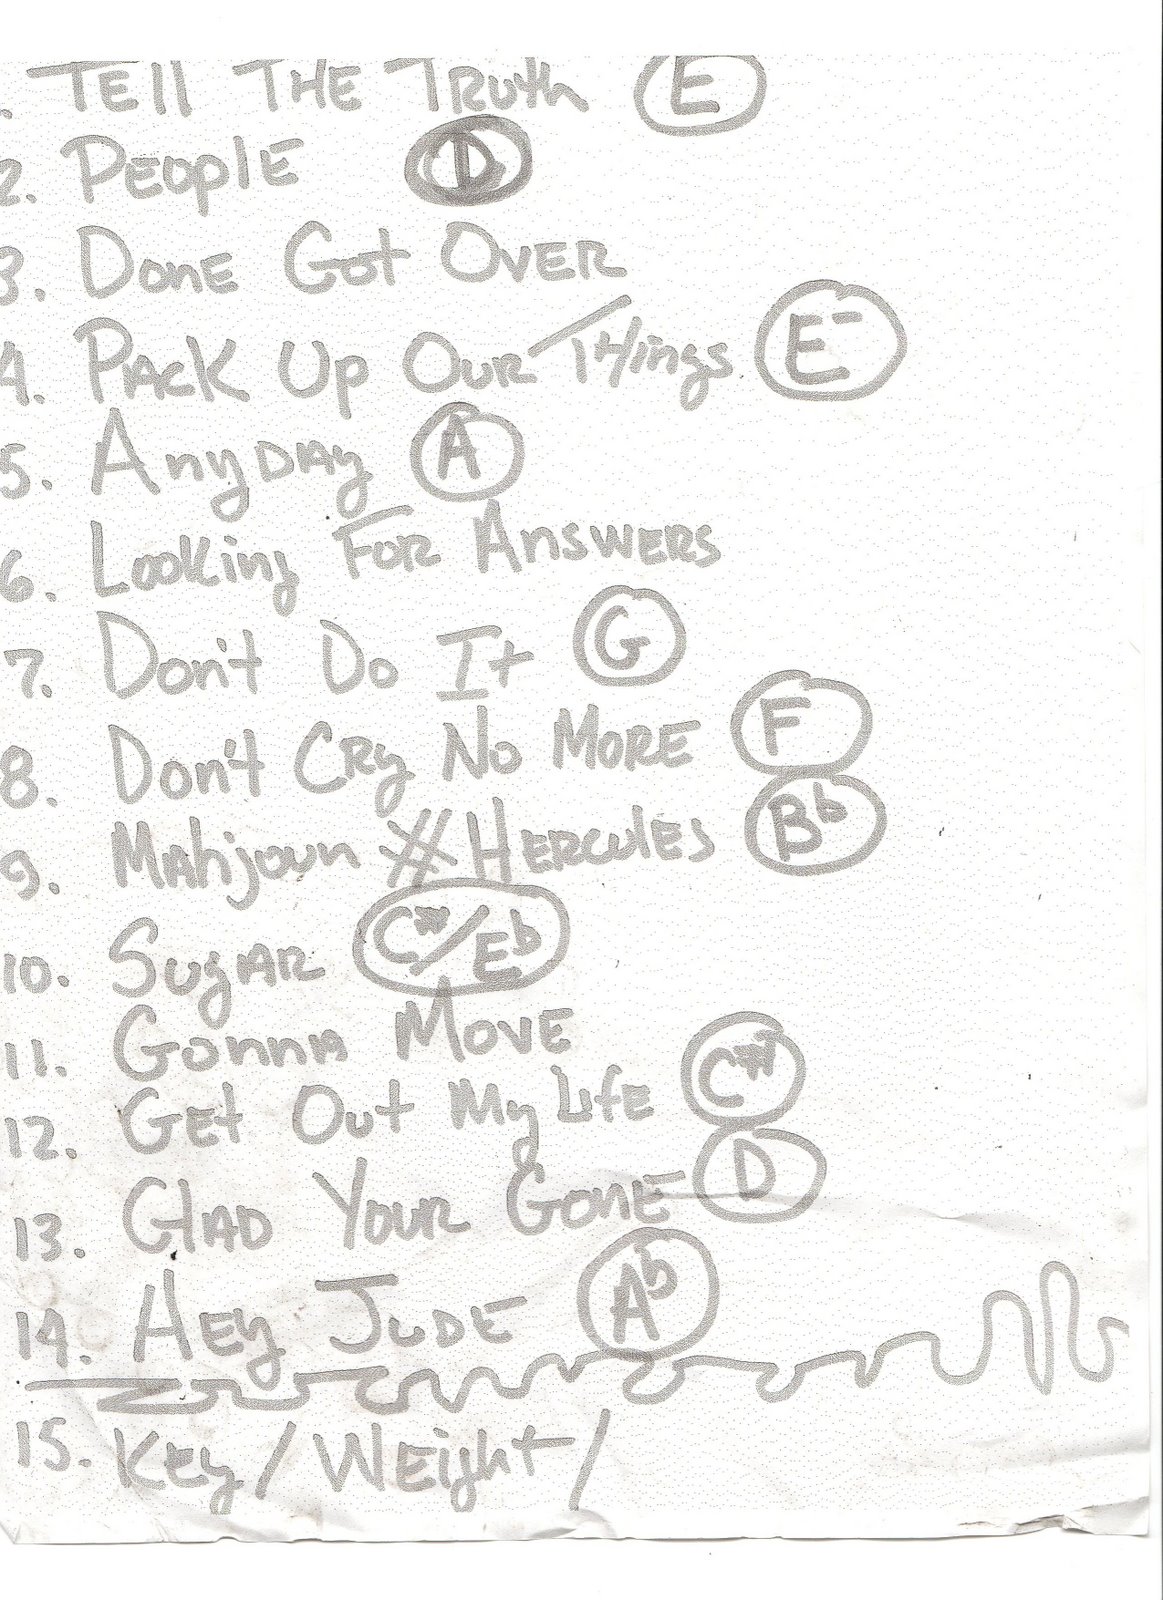 . TEll THE TRuth E
2. PEOplE D
3. DonE Got OVER
4. PAcK Up OuR THings E-
5. AnyDAy A
6. Looking FoR AnswERS
7. Don't Do It G
8. Don't CRy No MoRE F
9. MAhjoun # HERculES Bb
10. SugAR C#/Eb
11. GonnA MOVE
12. GEt Out My LifE C#
13. GlAD YouR GonE D
14. HEy JuDE Ab
15. KEy / WEight /